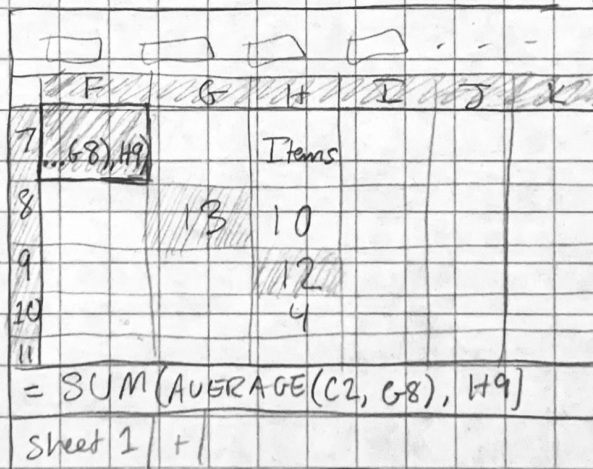 F G H I J K
7 ...G8),H9) Items
8 13 10
9 12
10 4
11
= SUM(AVERAGE(C2, G8), H9]
Sheet 1 +